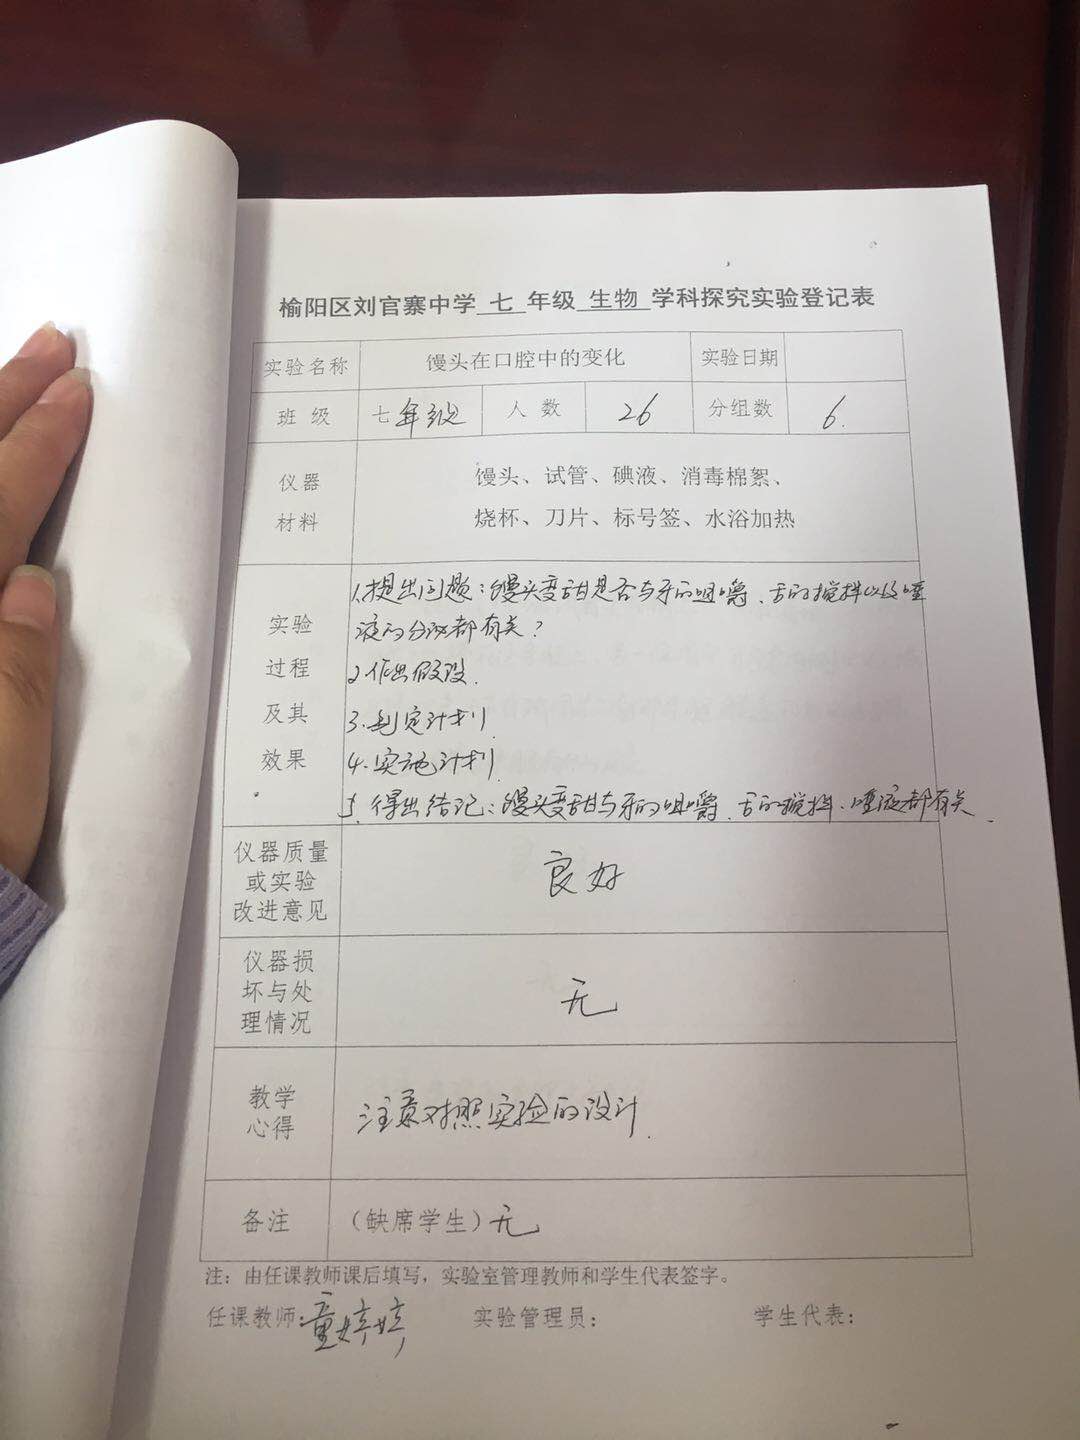 榆阳区刘官寨中学 七 年级 生物 学科探究实验登记表
实验名称 馒头在口腔中的变化 实验日期
班 级 七年级 人 数 26 分组数 6.
仪器
材料
馒头、试管、碘液、消毒棉絮、
烧杯、刀片、标号签、水浴加热
实验
过程
及其
效果
1.提出问题：馒头变甜是否与牙的咀嚼、舌的搅拌以及唾
液的分泌都有关？
2.作出假设.
3.制定计划.
4.实施计划.
5.得出结论：馒头变甜与牙的咀嚼、舌的搅拌、唾液都有关.
仪器质量
或实验
改进意见
良好
仪器损
坏与处
理情况
无
教学
心得
注意对照实验的设计.
备注 （缺席学生）无
注：由任课教师课后填写，实验室管理教师和学生代表签字。
任课教师：童婷婷 实验管理员： 学生代表：